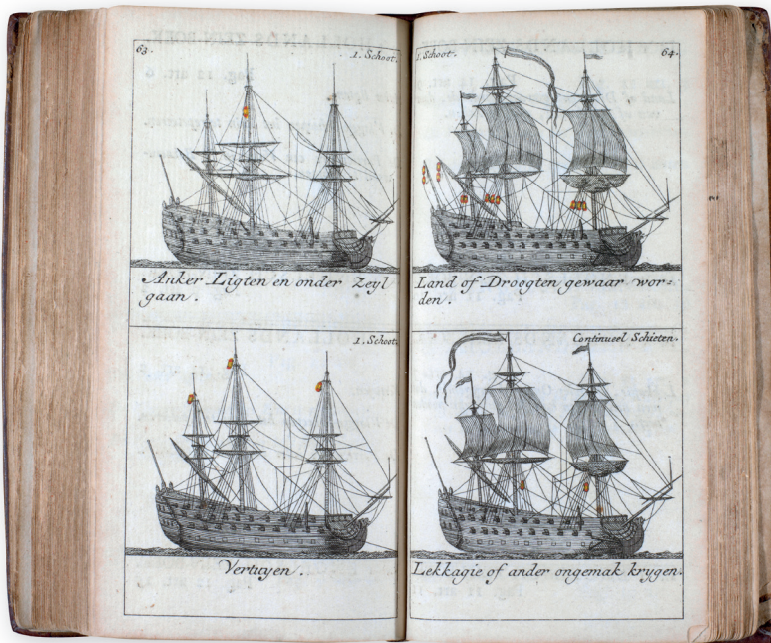 63.
1. Schoot.
Anker Ligten en onder Zeyl
gaan.
1. Schoot.
Vertuyen.
1. Schoot.
64.
Land of Droogten gewaar wor=
den.
Continueel Schieten.
Lekkagie of ander ongemak krygen.